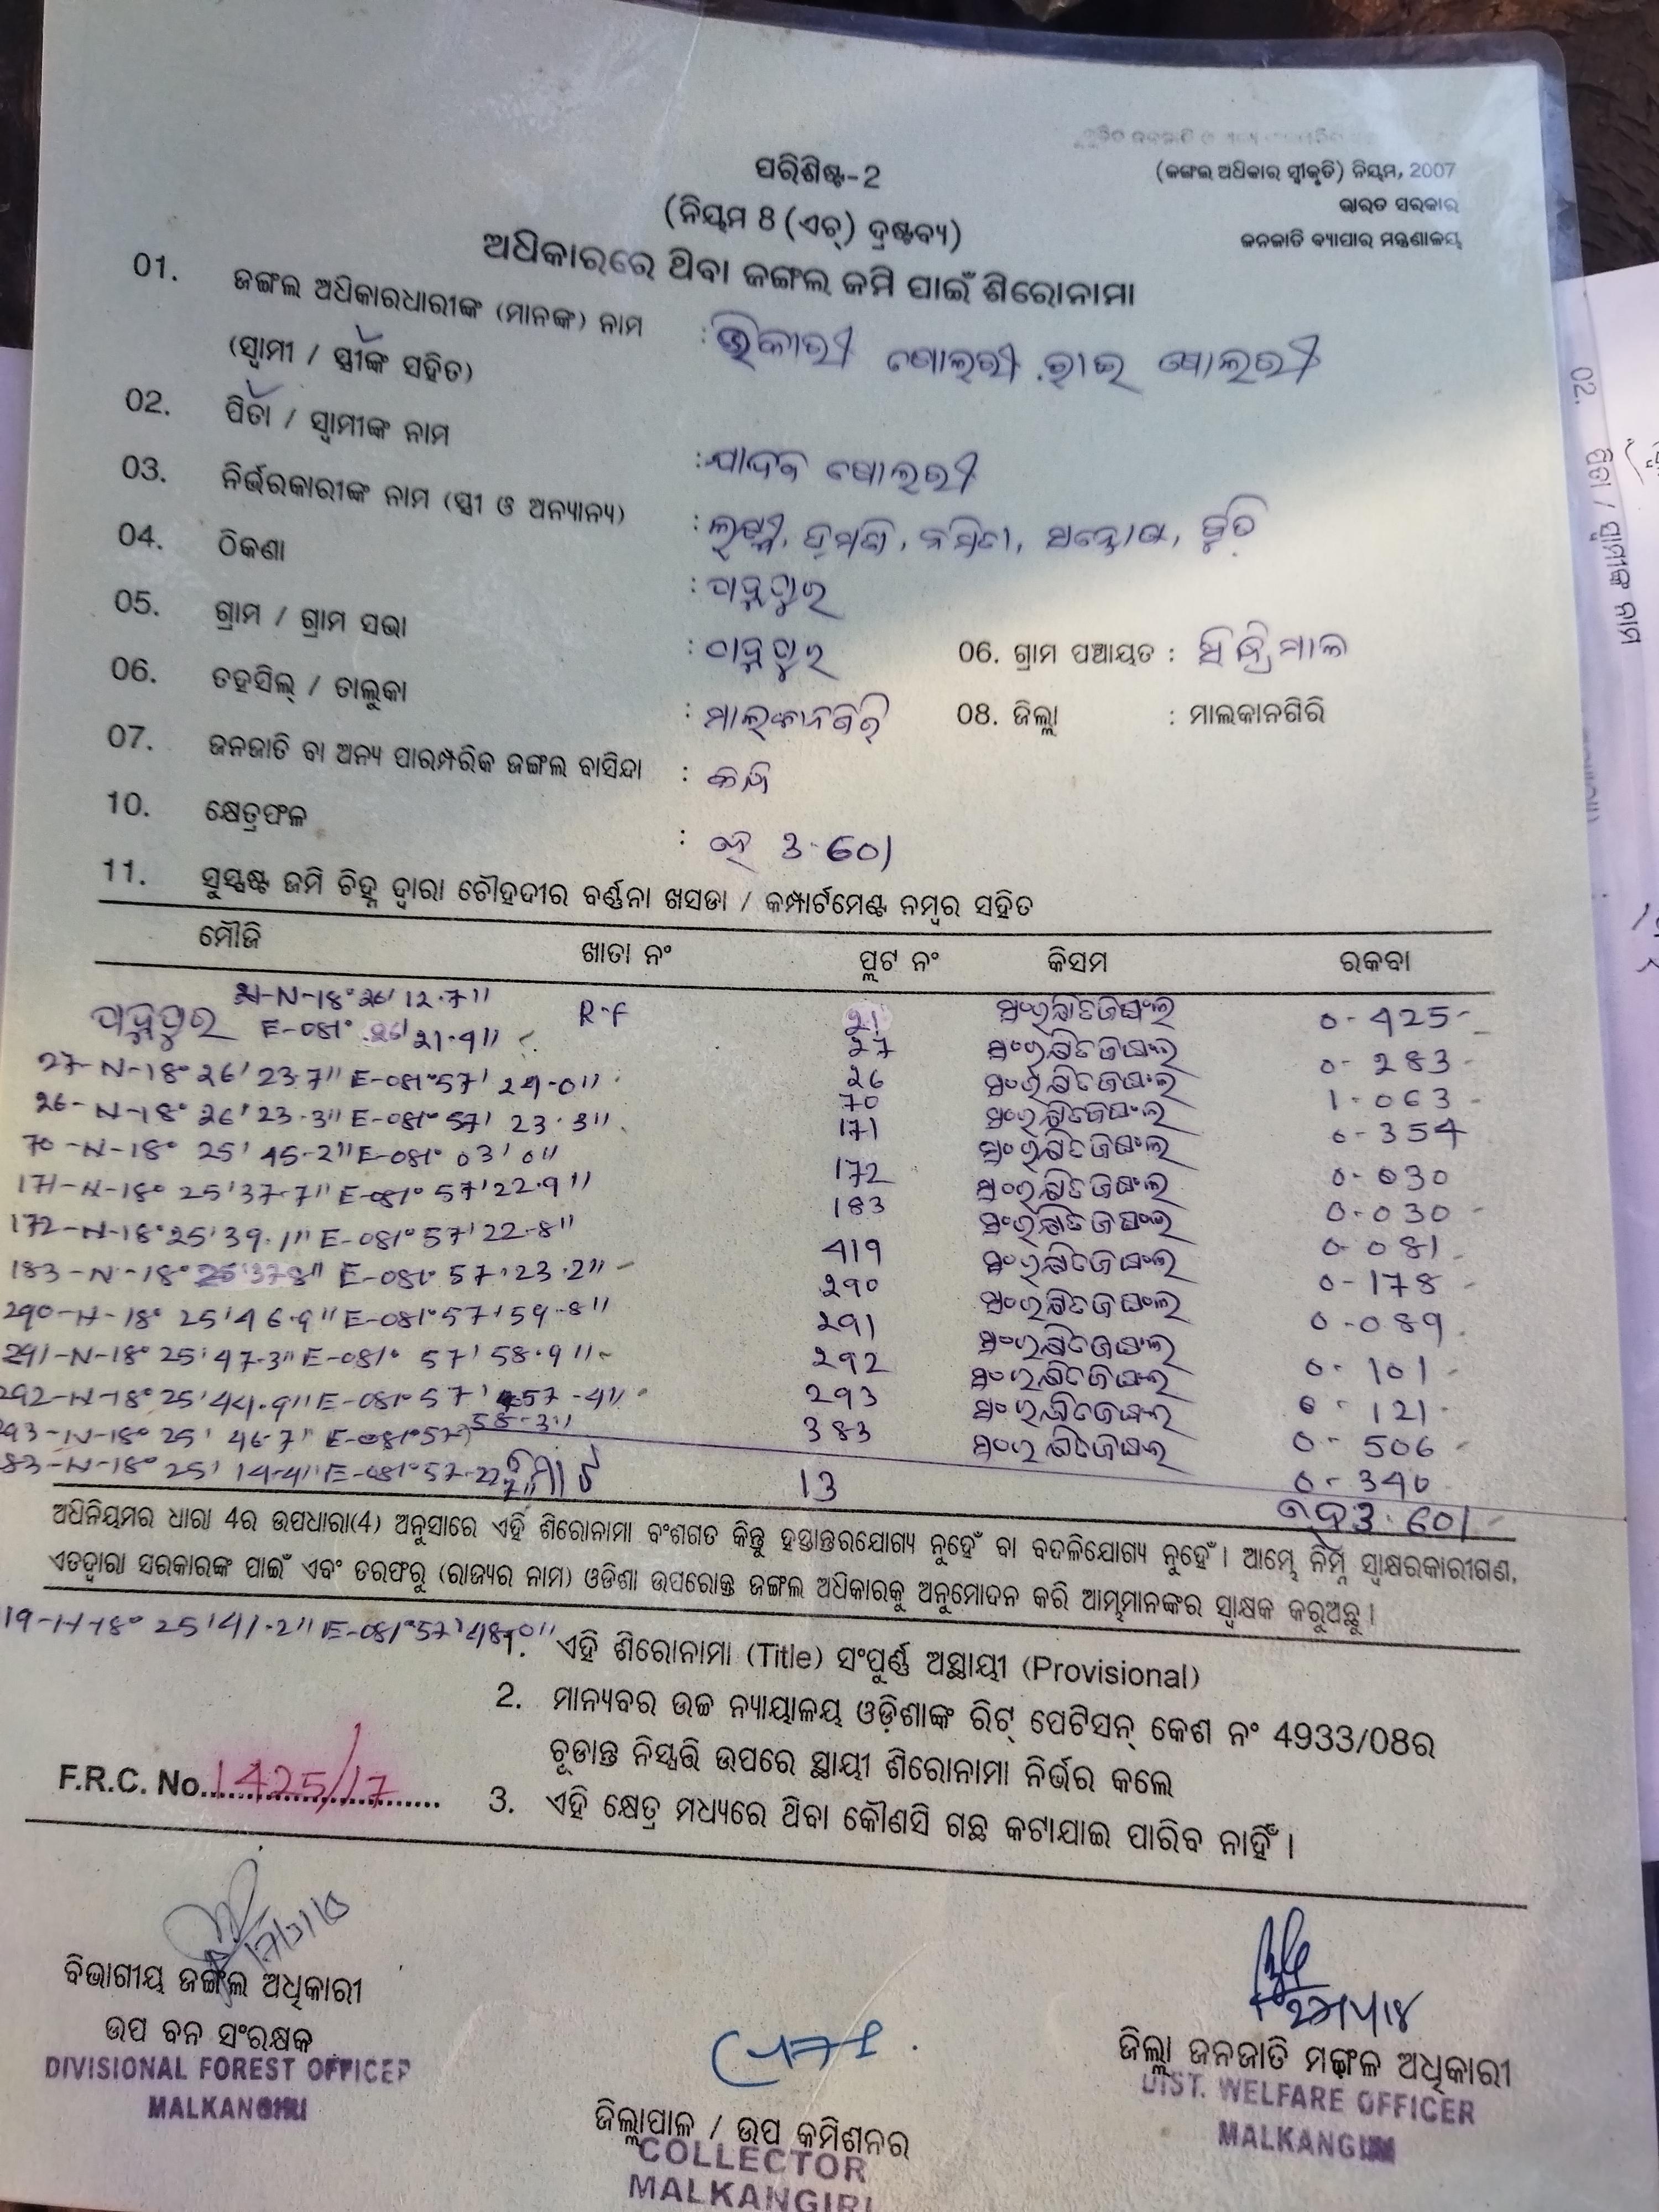 ପରିଶିଷ୍ଟ-2
(ଜଙ୍ଗଲ ଅଧିକାର ସ୍ୱୀକୃତି) ନିୟମ, 2007
(ନିୟମ 8 (ଏଚ୍) ଦ୍ରଷ୍ଟବ୍ୟ)
ଭାରତ ସରକାର
ଜନଜାତି ବ୍ୟାପାର ମନ୍ତ୍ରଣାଳୟ
ଅଧିକାରରେ ଥିବା ଜଙ୍ଗଲ ଜମି ପାଇଁ ଶିରୋନାମା
01. ଜଙ୍ଗଲ ଅଧିକାରଧାରୀଙ୍କ (ମାନଙ୍କ) ନାମ :
(ସ୍ୱାମୀ / ସ୍ତ୍ରୀଙ୍କ ସହିତ)
02. ପିତା / ସ୍ୱାମୀଙ୍କ ନାମ :
03. ନିର୍ଭରକାରୀଙ୍କ ନାମ (ସ୍ତ୍ରୀ ଓ ଅନ୍ୟାନ୍ୟ) : ଲକ୍ଷ୍ମୀ,
04. ଠିକଣା :
05. ଗ୍ରାମ / ଗ୍ରାମ ସଭା : 06. ଗ୍ରାମ ପଞ୍ଚାୟତ :
06. ତହସିଲ୍ / ତାଲୁକା : ମାଲକାନଗିରି 08. ଜିଲ୍ଲା : ମାଲକାନଗିରି
07. ଜନଜାତି ବା ଅନ୍ୟ ପାରମ୍ପରିକ ଜଙ୍ଗଲ ବାସିନ୍ଦା :
10. କ୍ଷେତ୍ରଫଳ : ହେ 3.601
11. ସୁସ୍ପଷ୍ଟ ଜମି ଚିହ୍ନ ଦ୍ୱାରା ଚୌହଦୀର ବର୍ଣ୍ଣନା ଖସଡା / କମ୍ପାର୍ଟମେଣ୍ଟ ନମ୍ବର ସହିତ
ମୌଜି ଖାତା ନଂ ପ୍ଲଟ ନଂ କିସମ ରକବା
21-N-18° 26' 12.7" R.F 21 ସଂରକ୍ଷିତଜଙ୍ଗଲ 0-425
E-081° 21.4" 27 ସଂରକ୍ଷିତଜଙ୍ଗଲ 0-283
27-N-18° 26' 23.7" E-081° 57' 29.0" 26 ସଂରକ୍ଷିତଜଙ୍ଗଲ 1-063
26-N-18° 26' 23.3" E-081° 57' 23.3" 70 ସଂରକ୍ଷିତଜଙ୍ଗଲ 0-354
70-N-18° 25' 45.2" E-081° 03' 0" 171 ସଂରକ୍ଷିତଜଙ୍ଗଲ 0-030
171-N-18° 25' 37.7" E-081° 57' 22.9" 172 ସଂରକ୍ଷିତଜଙ୍ଗଲ 0-030
172-N-18° 25' 39.1" E-081° 57' 22.8" 183 ସଂରକ୍ଷିତଜଙ୍ଗଲ 0-081
183-N-18° 25' 37.8" E-081° 57' 23.2" 419 ସଂରକ୍ଷିତଜଙ୍ଗଲ 0-178
290-N-18° 25' 46.9" E-081° 57' 59.8" 290 ସଂରକ୍ଷିତଜଙ୍ଗଲ 0-089
291-N-18° 25' 47.3" E-081° 57' 58.9" 291 ସଂରକ୍ଷିତଜଙ୍ଗଲ 0-101
292-N-18° 25' 44.9" E-081° 57' 57.4" 292 ସଂରକ୍ଷିତଜଙ୍ଗଲ 0-121
293-N-18° 25' 46.7" E-081° 57' 58.3" 293 ସଂରକ୍ଷିତଜଙ୍ଗଲ 0-506
83-N-18° 25' 14.4" E-081° 57-22.7" 383 ସଂରକ୍ଷିତଜଙ୍ଗଲ 0-340
ମୋଟ 13 3.601
ଅଧିନିୟମର ଧାରା 4ର ଉପଧାରା(4) ଅନୁସାରେ ଏହି ଶିରୋନାମା ବଂଶଗତ କିନ୍ତୁ ହସ୍ତାନ୍ତରଯୋଗ୍ୟ ନୁହେଁ ବା ବଦଳିଯୋଗ୍ୟ ନୁହେଁ । ଆମ୍ଭେ ନିମ୍ନ ସ୍ୱାକ୍ଷରକାରୀଗଣ,
ଏତଦ୍ୱାରା ସରକାରଙ୍କ ପାଇଁ ଏବଂ ତରଫରୁ (ରାଜ୍ୟର ନାମ) ଓଡିଶା ଉପରୋକ୍ତ ଜଙ୍ଗଲ ଅଧିକାରକୁ ଅନୁମୋଦନ କରି ଆମ୍ଭମାନଙ୍କର ସ୍ୱାକ୍ଷକ କରୁଅଛୁ ।
19-N-18° 25' 41.2" E-081° 57' 48.0"
1. ଏହି ଶିରୋନାମା (Title) ସଂପୂର୍ଣ୍ଣ ଅସ୍ଥାୟୀ (Provisional)
2. ମାନ୍ୟବର ଉଚ୍ଚ ନ୍ୟାୟାଳୟ ଓଡ଼ିଶାଙ୍କ ରିଟ୍ ପେଟିସନ୍ କେଶ ନଂ 4933/08ର
ଚୂଡାନ୍ତ ନିସ୍ପତ୍ତି ଉପରେ ସ୍ଥାୟୀ ଶିରୋନାମା ନିର୍ଭର କଲେ
F.R.C. No. 1425/17
3. ଏହି କ୍ଷେତ୍ର ମଧ୍ୟରେ ଥିବା କୌଣସି ଗଛ କଟାଯାଇ ପାରିବ ନାହିଁ ।
ବିଭାଗୀୟ ଜଙ୍ଗଲ ଅଧିକାରୀ
ଉପ ବନ ସଂରକ୍ଷକ
DIVISIONAL FOREST OFFICER
MALKANGIRI
ଜିଲ୍ଲାପାଳ / ଉପ କମିଶନର
COLLECTOR
MALKANGIRI
ଜିଲ୍ଲା ଜନଜାତି ମଙ୍ଗଳ ଅଧିକାରୀ
DIST. WELFARE OFFICER
MALKANGIRI
02. ପିତା / ସ୍ୱାମୀଙ୍କ ନାମ